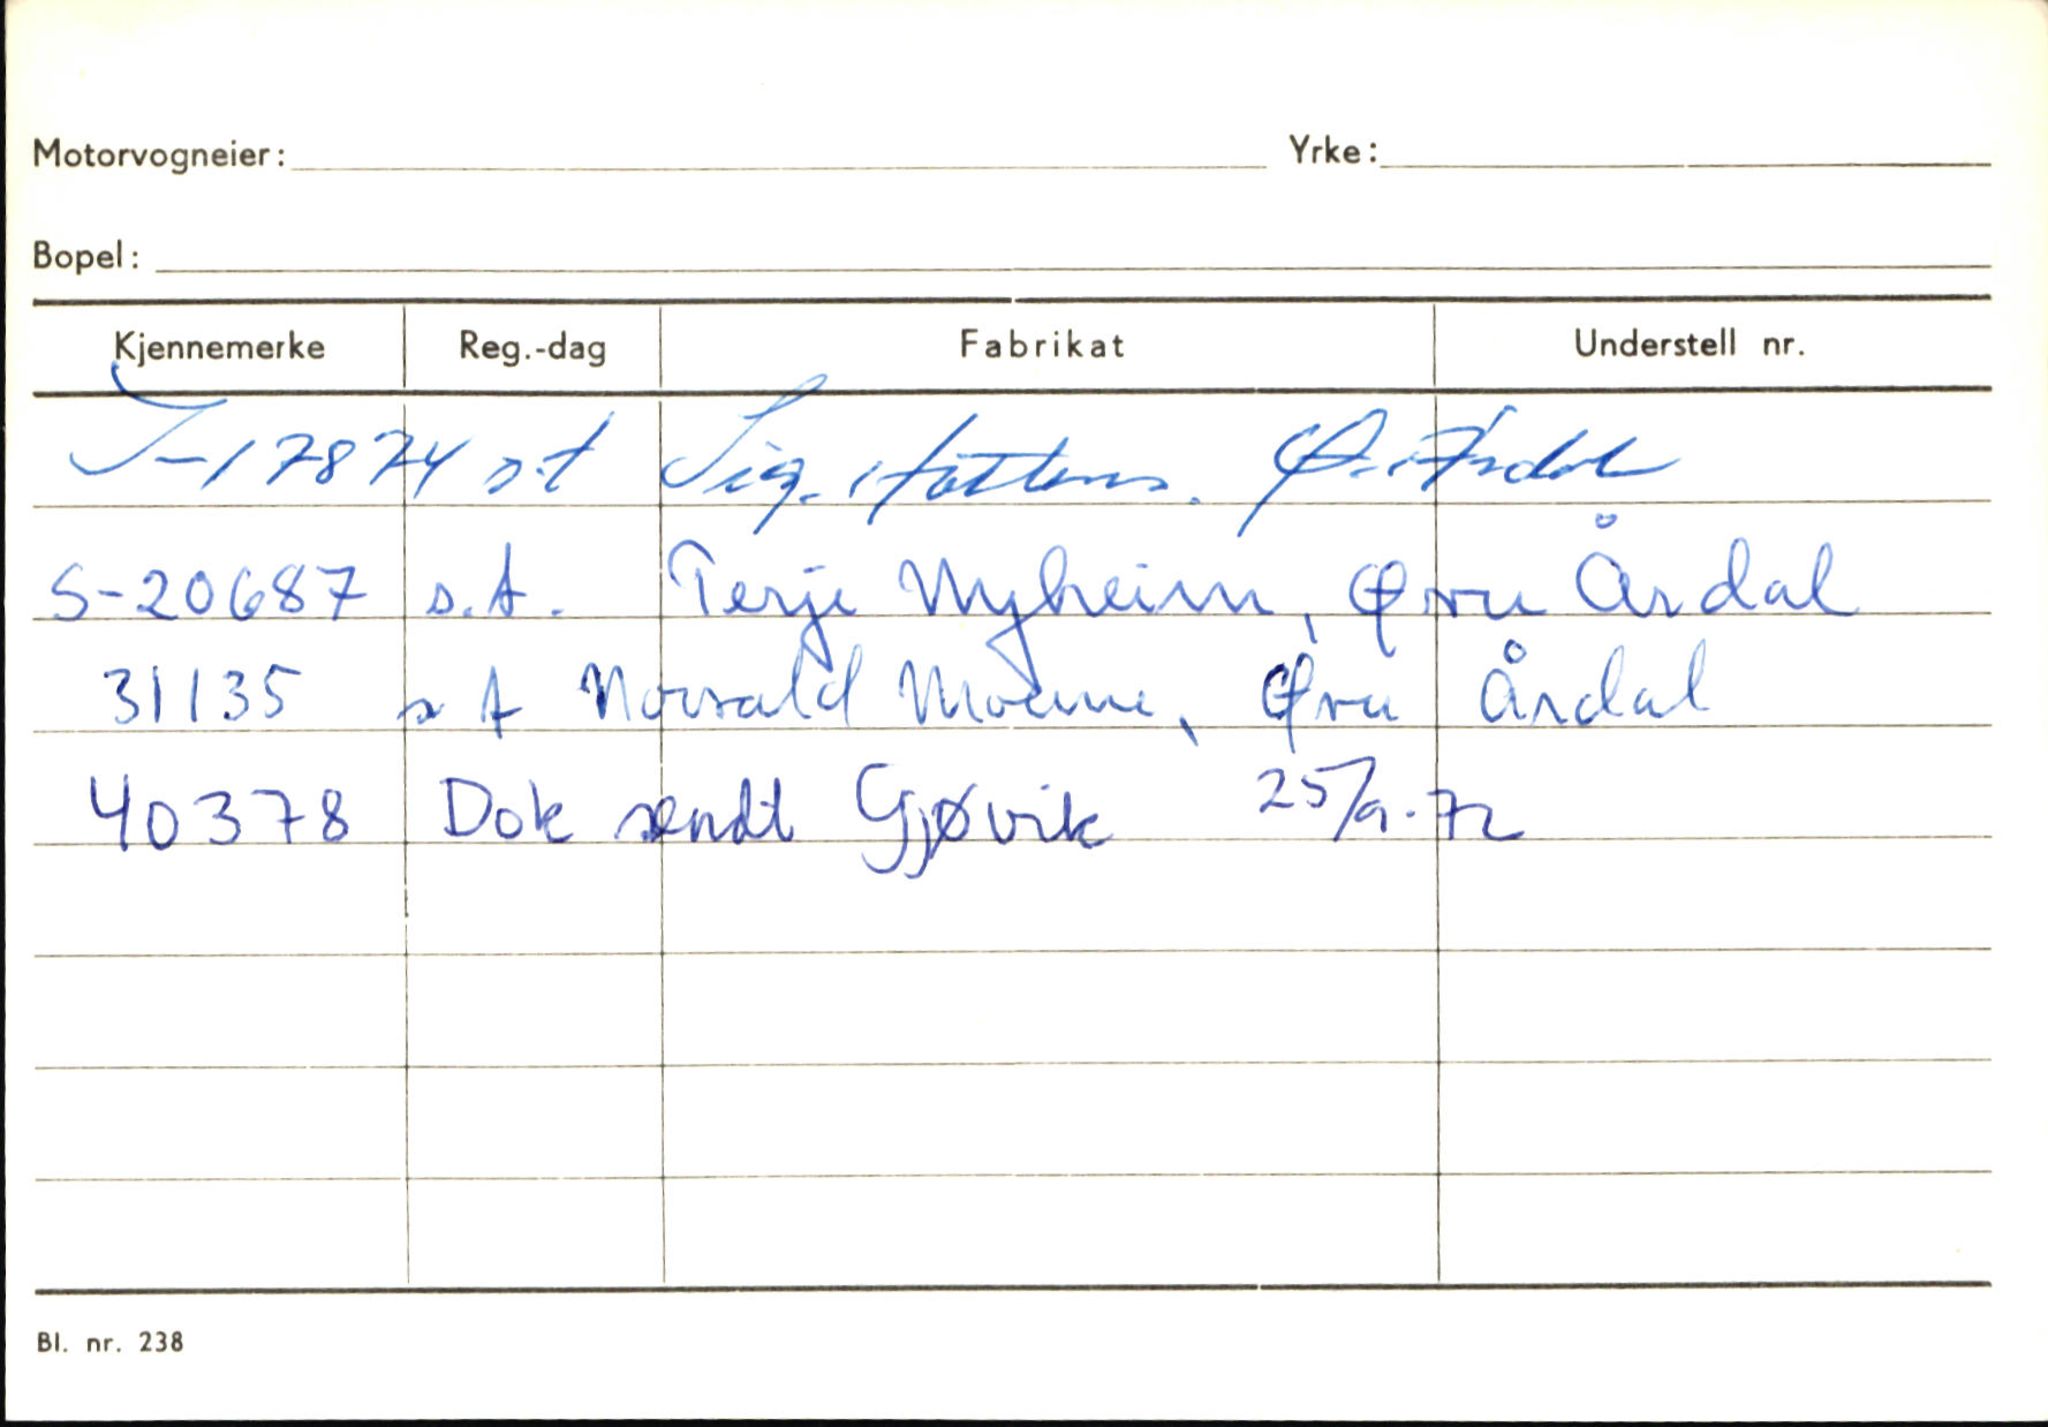 Motorvogneier: Yrke:
Bopel:
Kjennemerke Reg.-dag Fabrikat Understell nr.
17874 s.t Sig. Ø. Årdal
S-20687 s.t. Terje Nyheim, Øvre Årdal
31135 s t Norvald Moene, Øvre Årdal
40378 Dok sendt Gjøvik 25/9-72
Bl. nr. 238